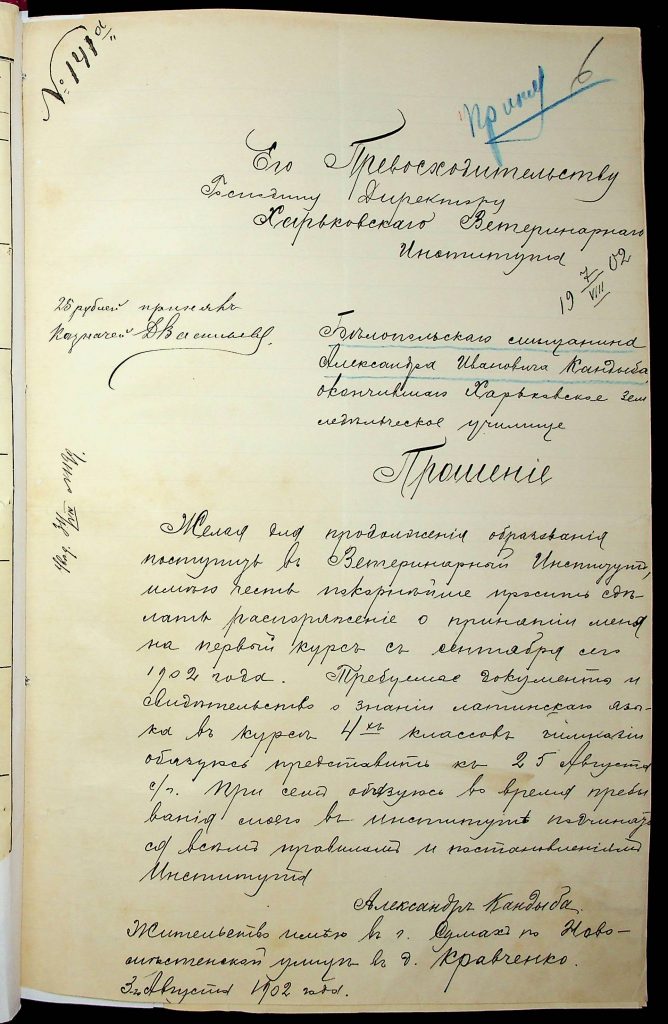 № 141а
Приня
6
Его Превосходительству
Господину Директору
Харьковскаго Ветеринарнаго
Института
19 7/VIII 02
25 рублей принялъ
Казначей ДВасильевъ.
Бѣлопольскаго мѣщанина
Александра Ивановича Кандыба,
окончившаго Харьковское зем
ледѣльческое училище
Прошеніе
Желая для продолженія образованія
поступить въ Ветеринарный Институтъ,
имѣю честь покорнѣйше просить сдѣ-
лать распоряженіе о принятіи меня
на первый курсъ съ сентября сего
1902 года. Требуемые документы и
свидѣтельство о знаніи латинскаго язы-
ка въ курсѣ 4хъ классовъ гимназіи
обязуюсь представить къ 25 Августа
с/г. При семъ обязуюсь во время пребы
ванія моего въ институтѣ подчинять
ся всѣмъ правиламъ и постановленіямъ
Института
Александръ Кандыба.
Жительство имѣю въ г. Сумахъ по Ново-
мѣстенской улицѣ въ д. Кравченко.
3го Августа 1902 года.